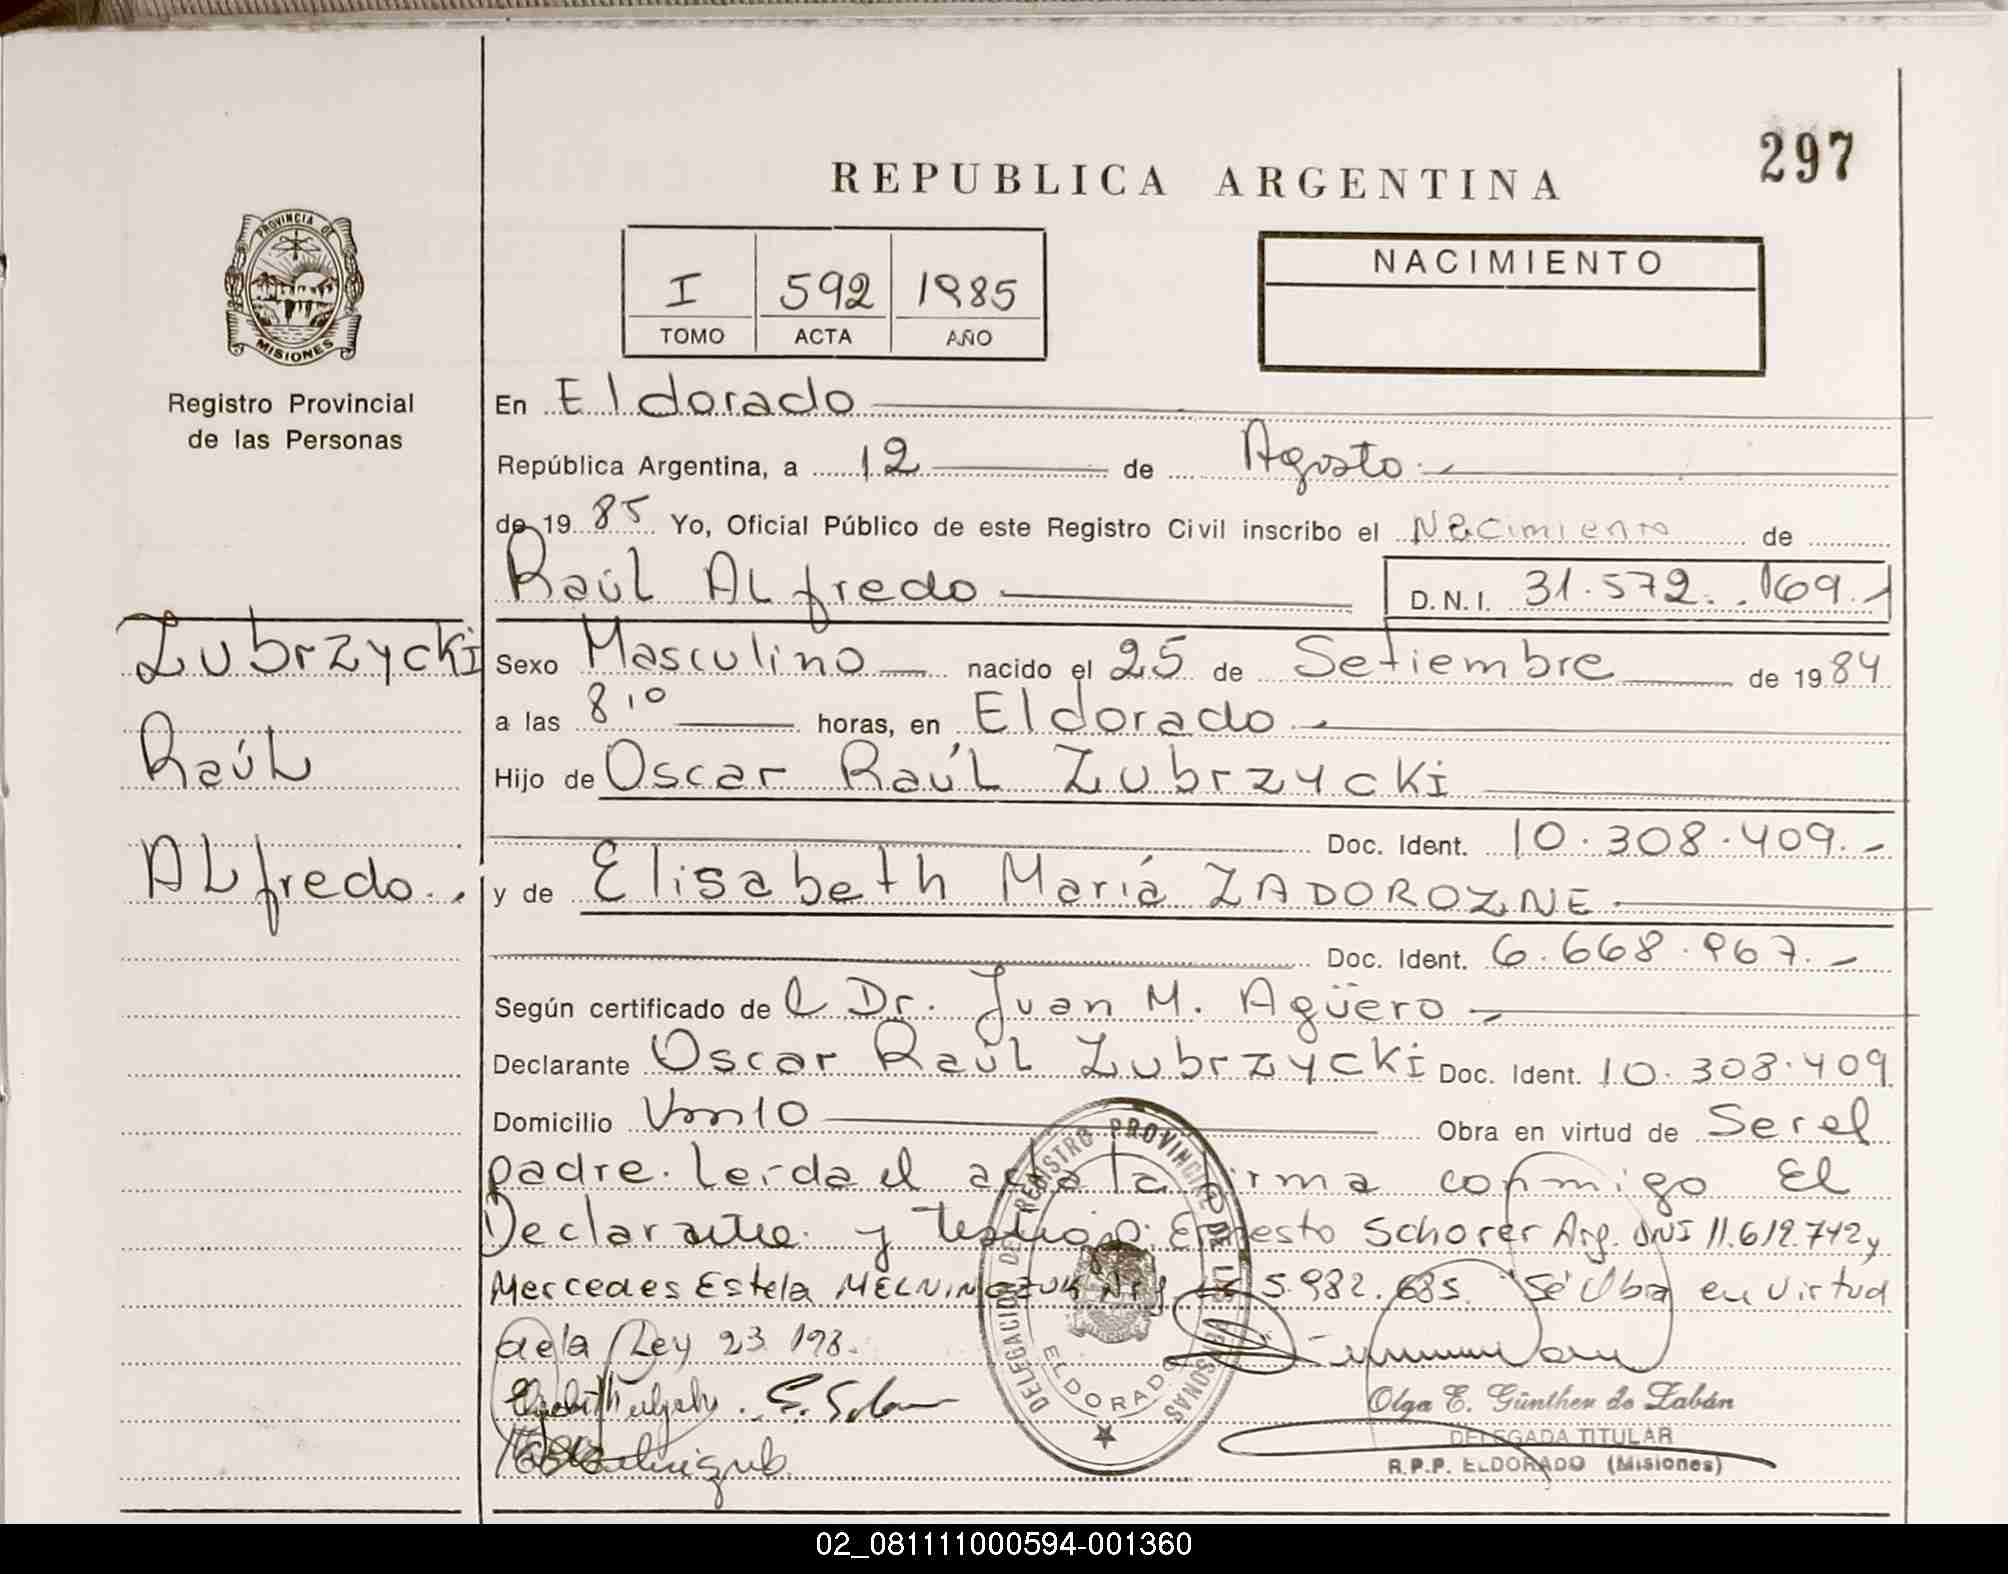 297
REPUBLICA ARGENTINA
PROVINCIA DE
MISIONES
Registro Provincial
de las Personas
I 592 1985
TOMO ACTA AÑO
NACIMIENTO
Zubrzycki
Raúl
Alfredo.
En Eldorado
República Argentina, a 12 de Agosto.
de 1985 Yo, Oficial Público de este Registro Civil inscribo el Nacimiento de
Raúl Alfredo D.N.I. 31.572.169.
Sexo Masculino nacido el 25 de Setiembre de 1984
a las 8,10 horas, en Eldorado.
Hijo de Oscar Raúl Zubrzycki
Doc. Ident. 10.308.409.-
y de Elisabeth Mariá ZADOROZNE.
Doc. Ident. 6.668.967.-
Según certificado de l Dr. Juan M. Agüero
Declarante Oscar Raúl Zubrzycki Doc. Ident. 10.308.409
Domicilio Km 10 Obra en virtud de Ser el
padre. Leída el acta la firma conmigo El
Declarante. y testigos: Ernesto Schorer Arg. DNI 11.612.742 y
Mercedes Estela Arg 5.982.685. Se Obra en virtud
de la Ley 23.193.
DELEGACION DEL REGISTRO PROVINCIAL DE LAS PERSONAS
ELDORADO
Olga E. Günther de Zabán
DELEGADA TITULAR
R.P.P. ELDORADO (Misiones)
02_081111000594-001360